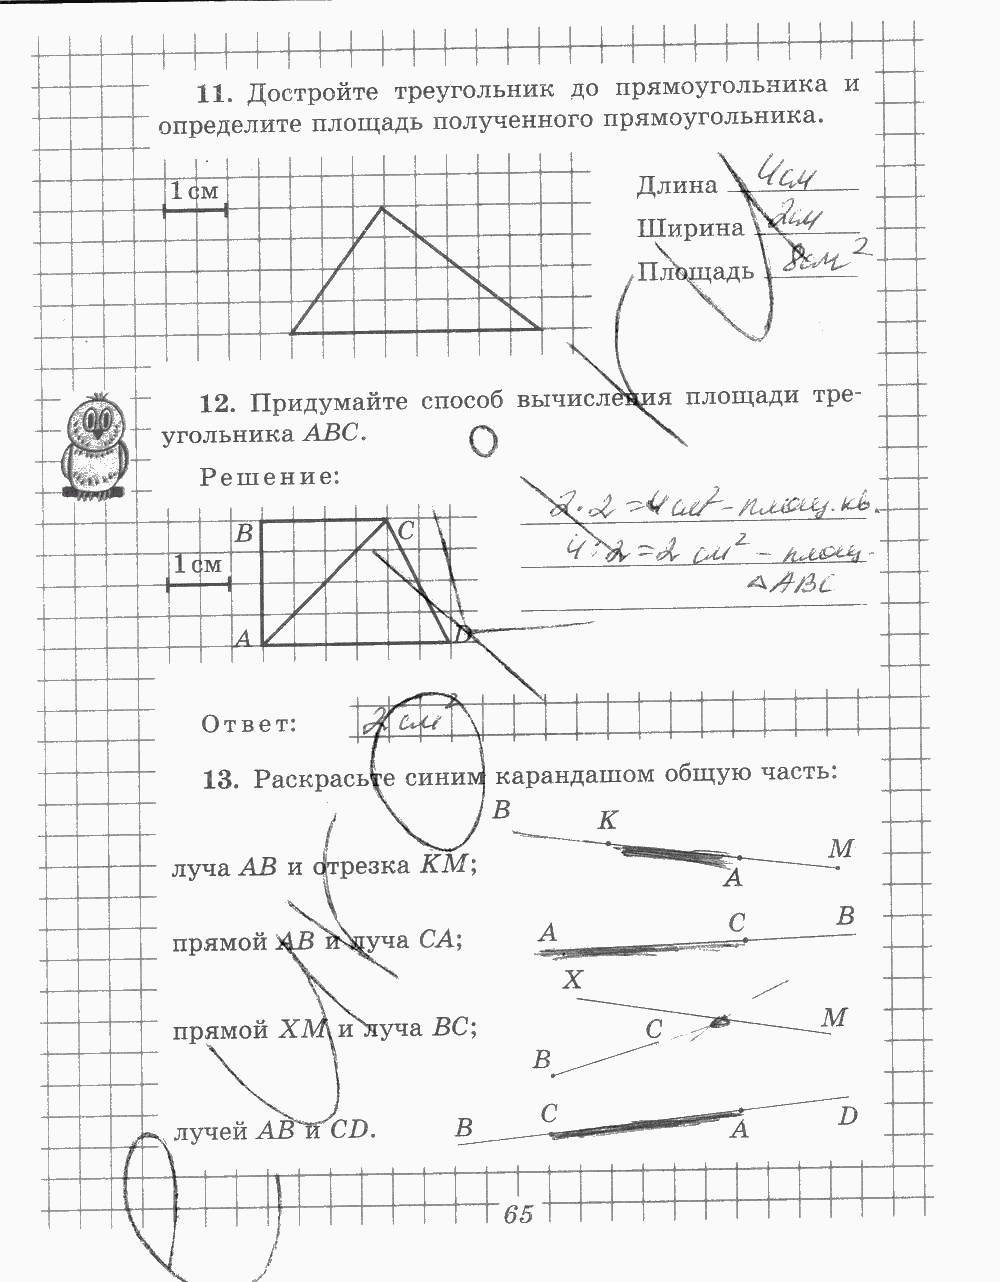 11. Достройте треугольник до прямоугольника и
определите площадь полученного прямоугольника.
1 см
Длина 4см
Ширина 2см
Площадь 8см²
12. Придумайте способ вычисления площади тре-
угольника ABC.
Решение:
2·2=4 см² – площ. кв.
4:2=2 см² – площ.
△ABC
B
C
1 см
A
D
Ответ: 2 см²
13. Раскрасьте синим карандашом общую часть:
B
K
M
A
луча AB и отрезка KM;
A
C
B
прямой AB и луча CA;
X
M
C
B
прямой XM и луча BC;
B
C
A
D
лучей AB и CD.
65